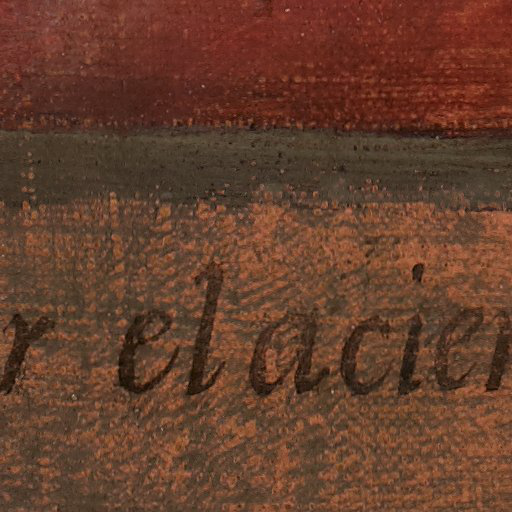 r el acier